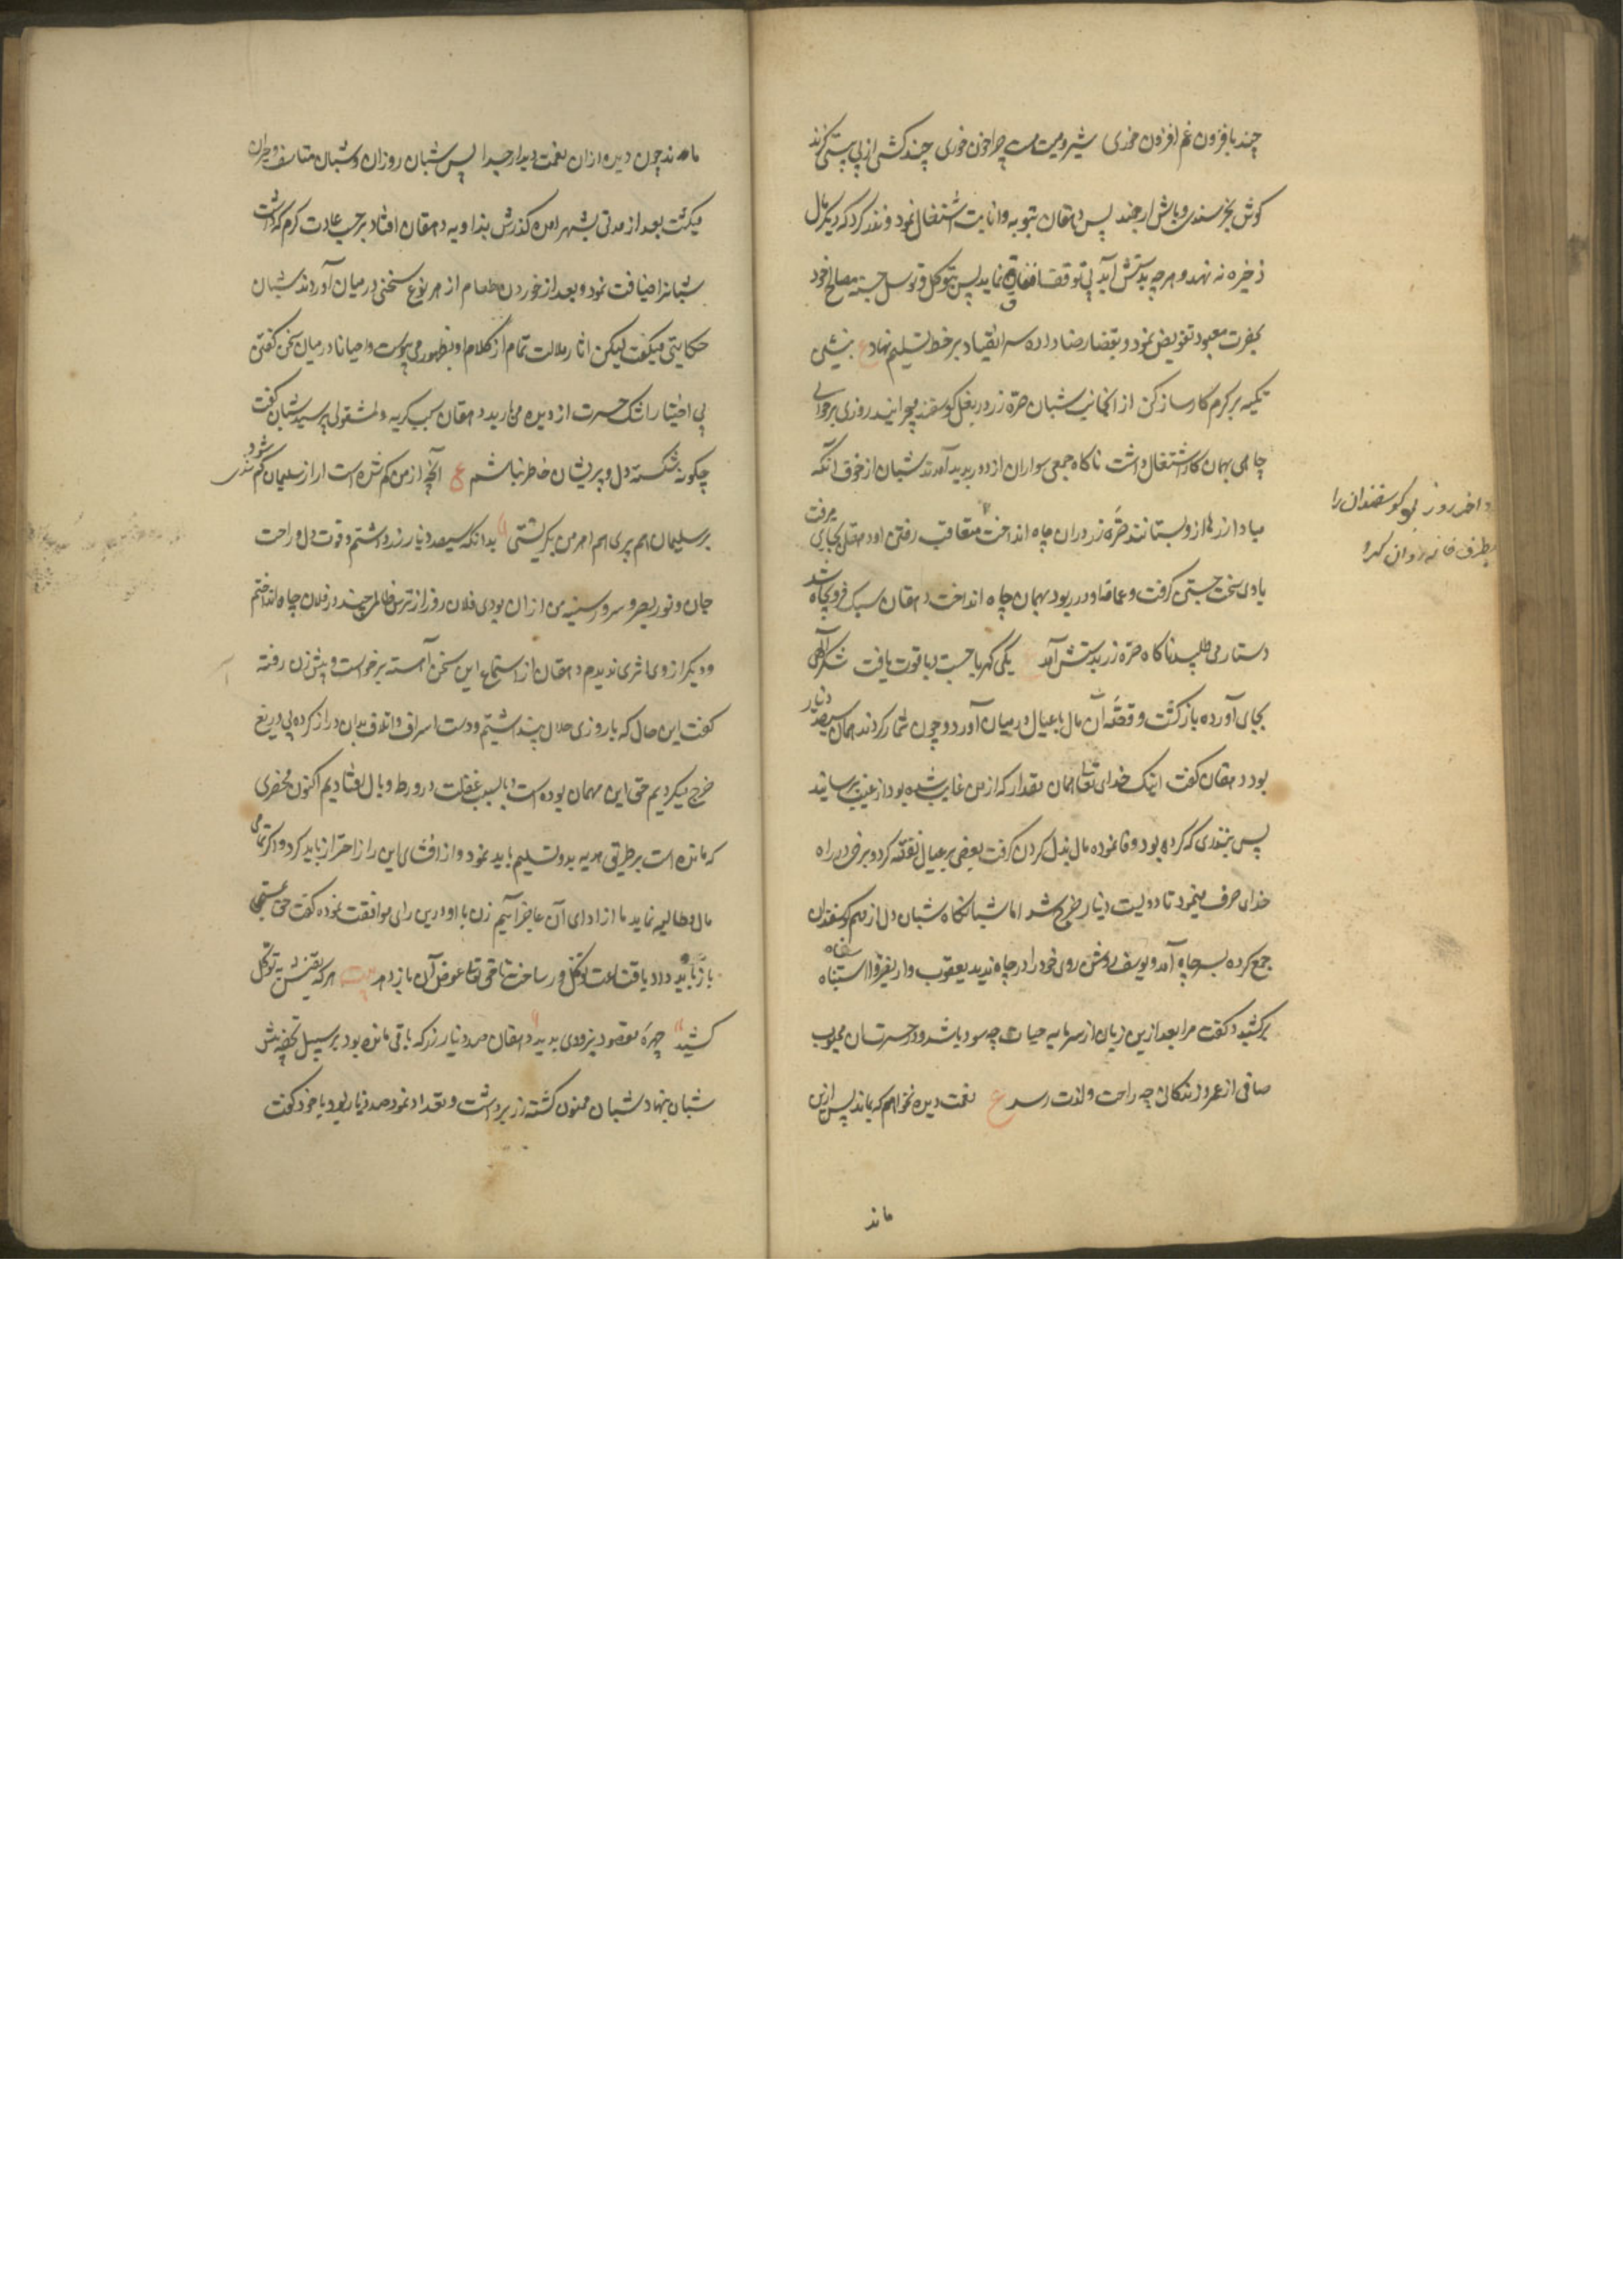 چند بافزون غم افزون خوری شیرویت هست چرا خون خوری چند کشی از پی بیشی گزند
کوش بخرسندی و باش ارجمند پس دهقان بتوبه و انابت اشتغال نمود و نذر کرد که دیگر مال
ذخیره نه نهد و هرچه بدستش آید بی توقف انفاق نماید پس بتوکل و توسل جسته مصالح خود
بحضرت معبود تفویض نمود و بقضا رضا داده سر انقیاد بر خط تسلیم نهاد ع بنشین
تکیه بر کرم کارساز کن از انجانب شبان صرّه زر در بغل گوسفند میچرانید روزی بر حوالی
چاهی بهمان کار اشتغال داشت ناگاه جمعی سواران از دور پدید آمدند شبان از خوف انکه
مبادا زرها از و بستانند صرّه زر دران چاه انداخت متعاقب رفتن او دهقان بجایی میرفت
و آخر روز بود گوسفندان را
بطرف خانه روان کرد
بادی سخت جستن گرفت و عمامه او در ربود بهمان چاه انداخت دهقان سبک فرو بچاه شد
دستار می طلبید ناگاه صرّه زر بدستش آمد ع یکی کهربا جست و یاقوت یافت شکر الهی
بجای آورده بازگشت و قصّه آن مال با عیال در میان آورد و چون شمار کردند همان سیصد دینار
بود دهقان گفت اینک خدای تعالی همان مقدار که از من غایب شده بود از غیب برسانید
پس بنذری که کرده بود وفا نموده مال بذل کردن گرفت بعضی بر عیال نفقه کرد و برخی در راه
خدای صرف مینمود تا دویست دینار خرج شد اما شبانگاه شبان دل از مهم گوسفندان
جمع کرده بسر چاه آمد و یوسف روش روی خود را در چاه ندید یعقوب وار نفیر وا اسفاه
برکشید و گفت مرا بعد ازین زیان از سرمایه حیات چه سود باشد و در حسرت آن محبوب
صافی از عمر و زندگانی چه راحت و لذت رسد ع نعمت دیده نخواهم که بماند پس ازین
ماند
مانده چون دیده ازان نعمت دیدار جدا پس شبان روزان و شبان متاسف و حیران
میگشت بعد از مدتی بشهر آمده گذرش بزاویه دهقان افتاد بر حسب عادت کرم که داشت
شبانرا ضیافت نمود و بعد از خوردن طعام از هر نوع سخنی در میان آوردند شبان
حکایتی میگفت لیکن اثار ملالت تمام از کلام او بظهور می پیوست و احیانا در میان سخن گفتن
بی اختیار اشک حسرت از دیده می بارید دهقان سبب گریه و مشغولی پرسید شبان گفت
چگونه شکسته دل و پریشان خاطر نباشم ع آنچه از من گم شده است ار از سلیمان گم شدی
بر سلیمان هم پری هم اهرمن بگریستی بدانکه سیصد دینار زر داشتم و قوت دل و راحت
جان و نور بصر و سرور سینه من ازان بودی فلان روز از ترس ظالمی چند در فلان چاه انداختم
و دیگر از وی اثری ندیدم دهقان از استماع این سخن آهسته برخواست و پیش زن رفته
گفت این مال که با روزی حلال پنداشتیم و دست اسراف و اتلاف بدان دراز کرده بی دریغ
خرج میکردیم حق این مهمان بوده است و ما بسبب غفلت در ورطه وبال افتادیم اکنون محضری
که مانده است بر طریق هدیه بدو تسلیم باید نمود و از افشای این راز احتراز باید کرد و اگر تمامی
مال مطالبه نماید ما از ادای آن عاجز آییم زن با او درین رای موافقت نموده گفت حق بمستحق
باز باید داد و با قناعت و توکل در ساخت تا حق تعالی عوض آن باز دهد بیت هر که یقینش بتوکل
کشید چهره مقصود بزودی بدید دهقان صد دینار زر که باقی مانده بود بر سبیل تحفه پیش
شبان بنهاد شبان ممنون گشته زر برداشت و تعداد نمود صد دینار بود با خود گفت